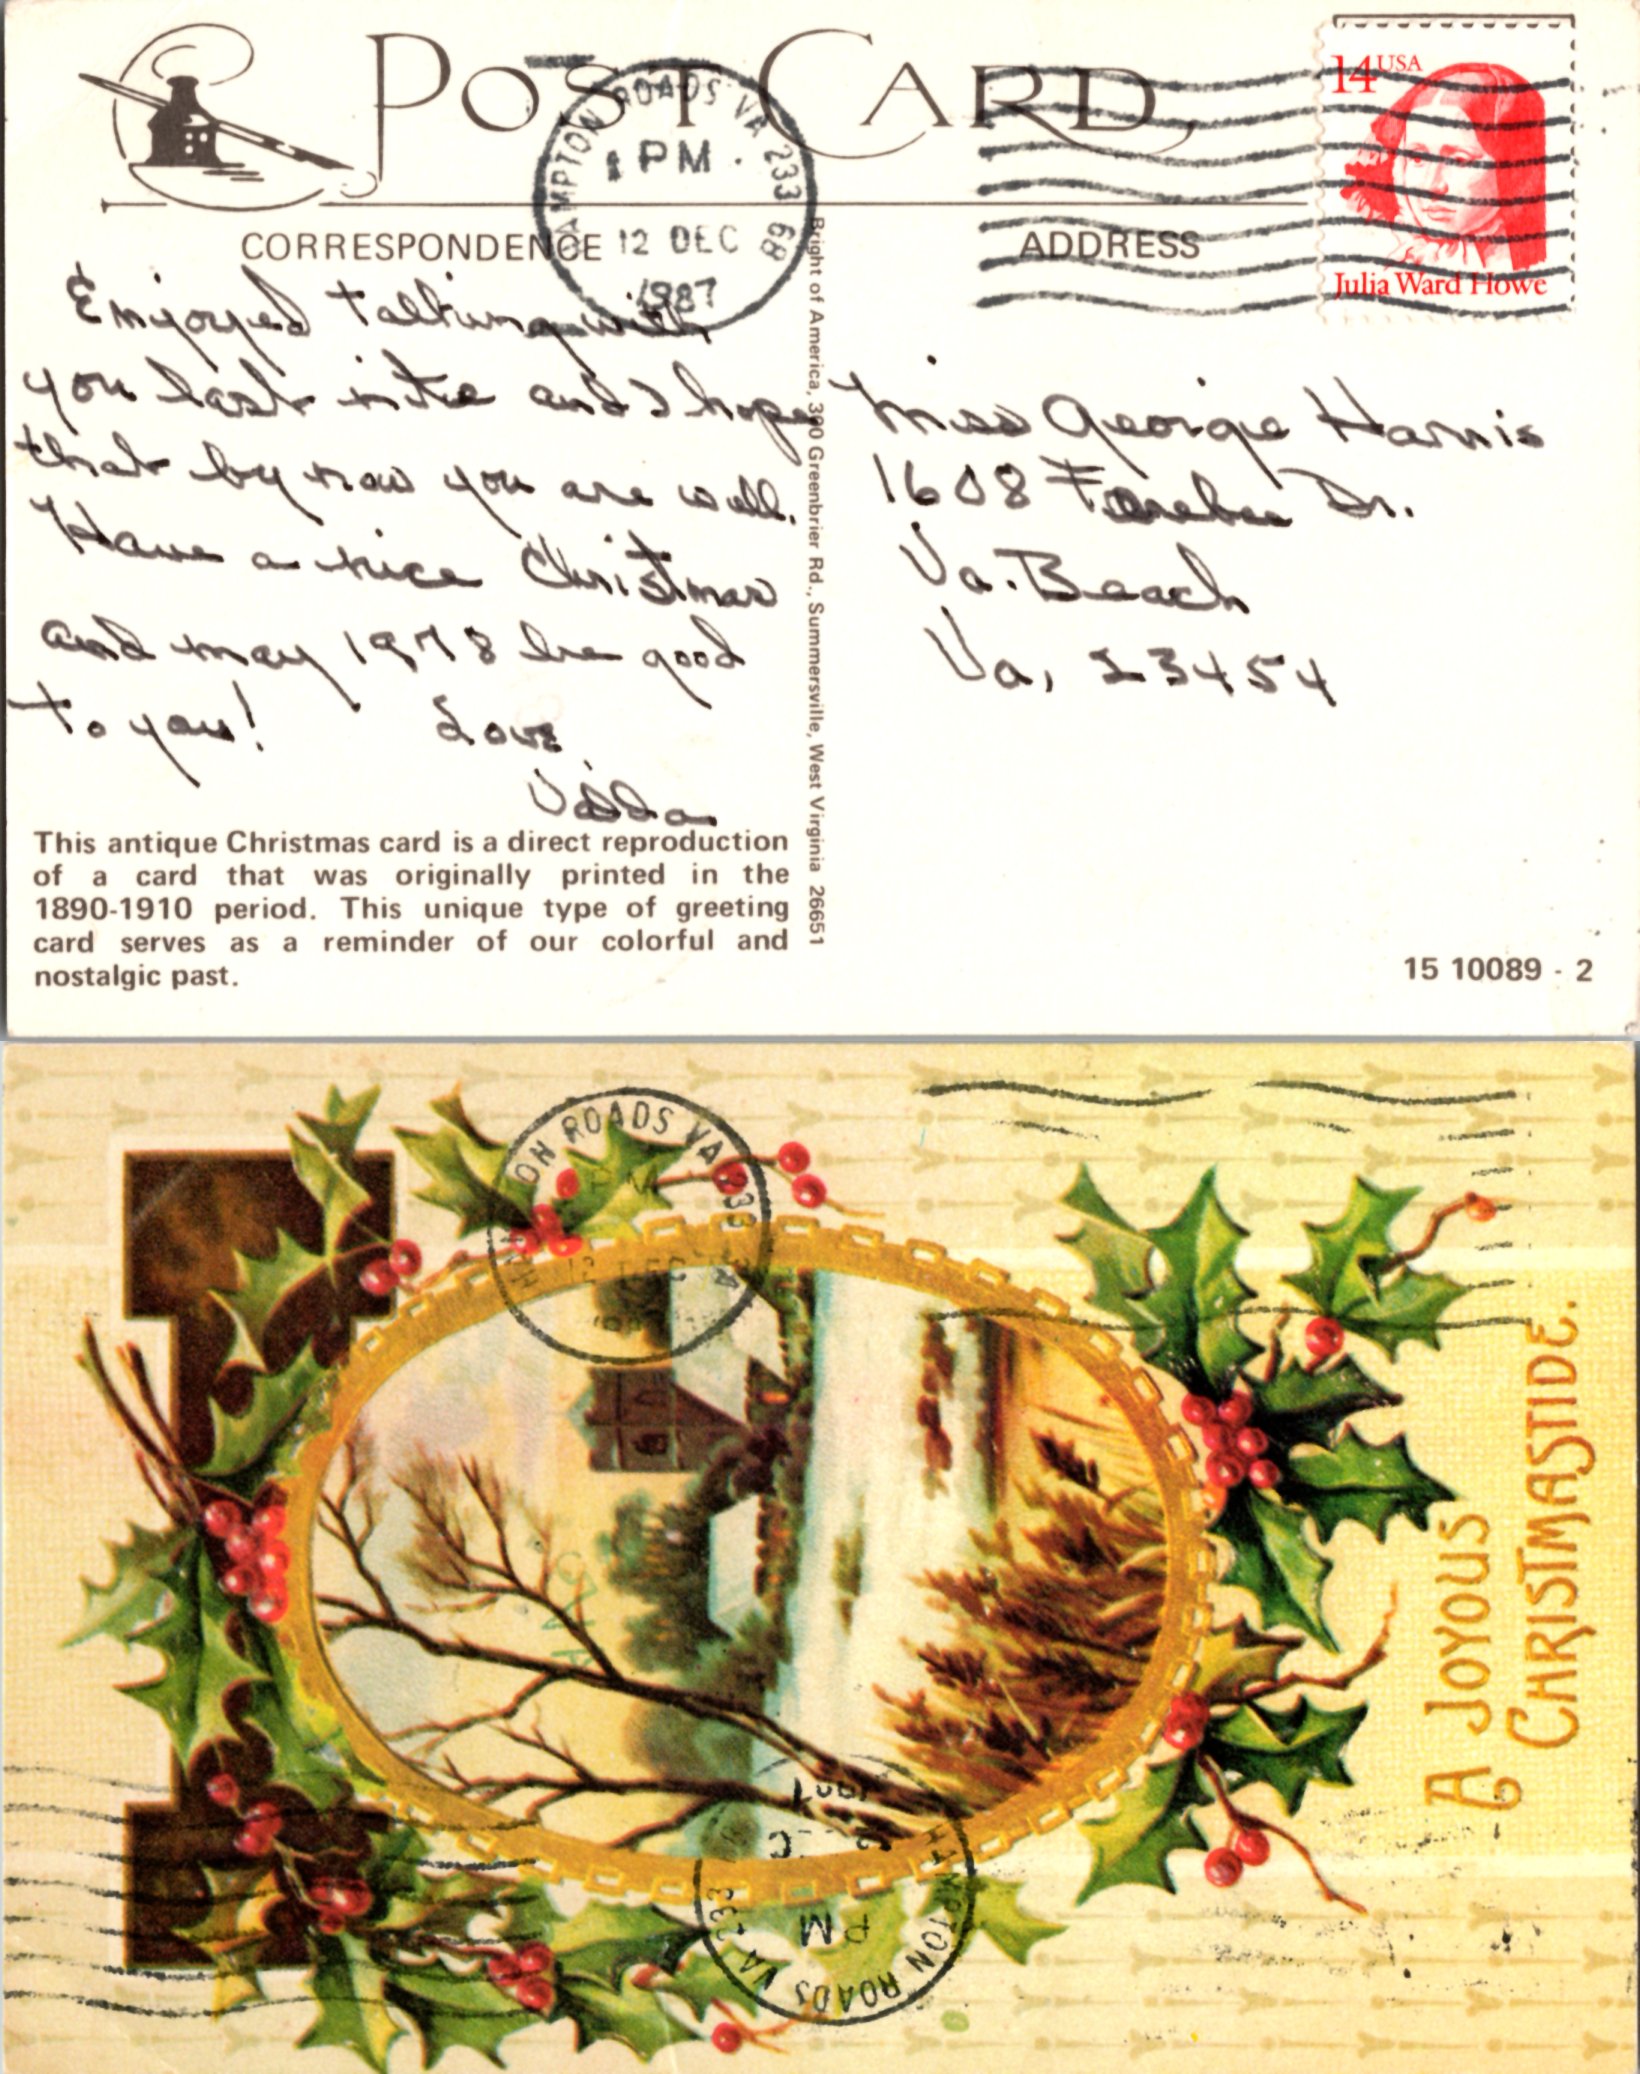 POST CARD
HAMPTON ROADS VA 233
1 PM
12 DEC
1987
14 USA
Julia Ward Howe
CORRESPONDENCE
ADDRESS
Enjoyed talking with
you last nite and I hope
that by now you are well.
Have a nice Christmas
and may 1978 be good
to you!
Love
Miss George Harris
1608 Dr.
Va. Beach
Va, 23454
Bright of America, 300 Greenbrier Rd., Summersville, West Virginia 26651
This antique Christmas card is a direct reproduction
of a card that was originally printed in the
1890-1910 period. This unique type of greeting
card serves as a reminder of our colorful and
nostalgic past.
15 10089 - 2
HAMPTON ROADS VA 233
PM
12 DEC
A JOYOUS
CHRISTMASTIDE.
HAMPTON ROADS VA 233
PM